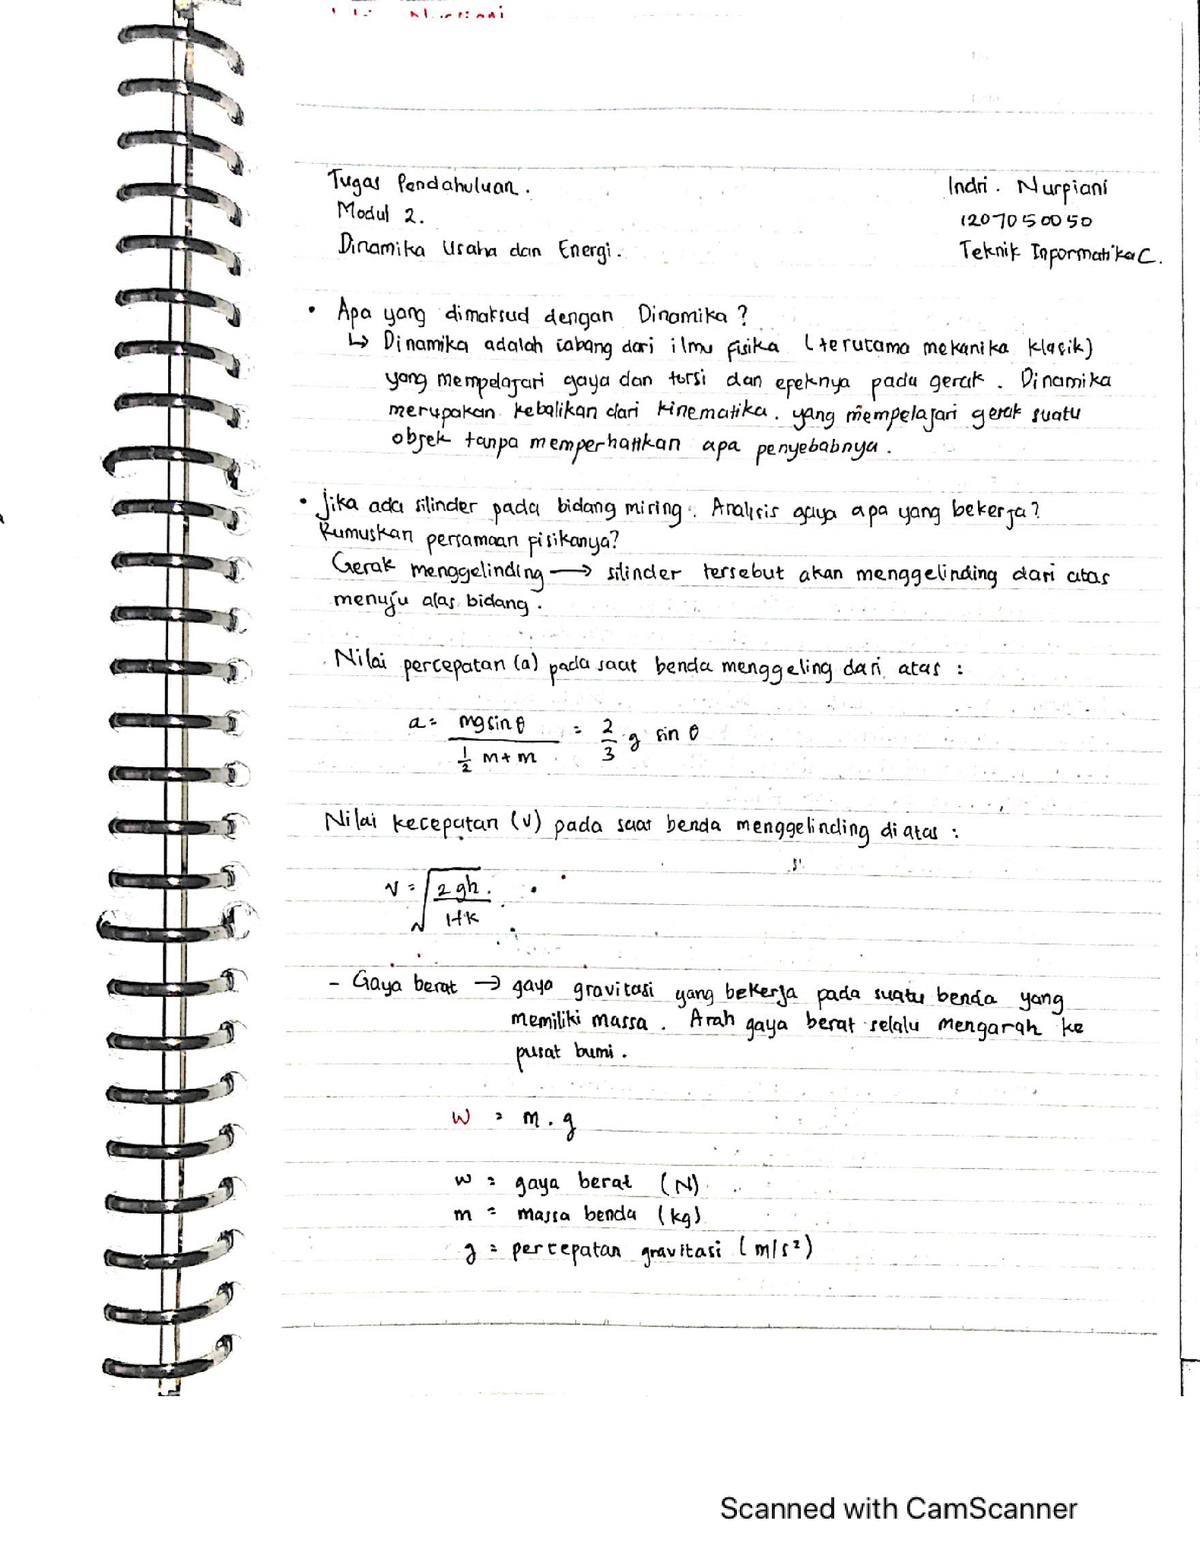 Nurpiani
Tugas Pendahuluan.
Modul 2.
Dinamika Usaha dan Energi.
Indri. Nurpiani
1207050050
Teknik Informatika C.
• Apa yang dimaksud dengan Dinamika?
↳ Dinamika adalah cabang dari ilmu fisika (terutama mekanika klasik)
yang mempelajari gaya dan torsi dan efeknya pada gerak. Dinamika
merupakan kebalikan dari kinematika. yang mempelajari gerak suatu
objek tanpa memperhatikan apa penyebabnya.
• Jika ada silinder pada bidang miring. Analisis gaya apa yang bekerja?
Rumuskan persamaan fisikanya?
Gerak menggelinding → silinder tersebut akan menggelinding dari atas
menuju alas bidang.
Nilai percepatan (a) pada saat benda menggeling dari atas :
a = mg sin θ / (1/2 m + m) = 2/3 g sin θ
Nilai kecepatan (v) pada saat benda menggelinding di atas :
v = √(2gh. / 1+k)
- Gaya berat → gaya gravitasi yang bekerja pada suatu benda yang
memiliki massa. Arah gaya berat selalu mengarah ke
pusat bumi.
W = m . g
w = gaya berat (N)
m = massa benda (kg)
g = percepatan gravitasi (m/s²)
Scanned with CamScanner